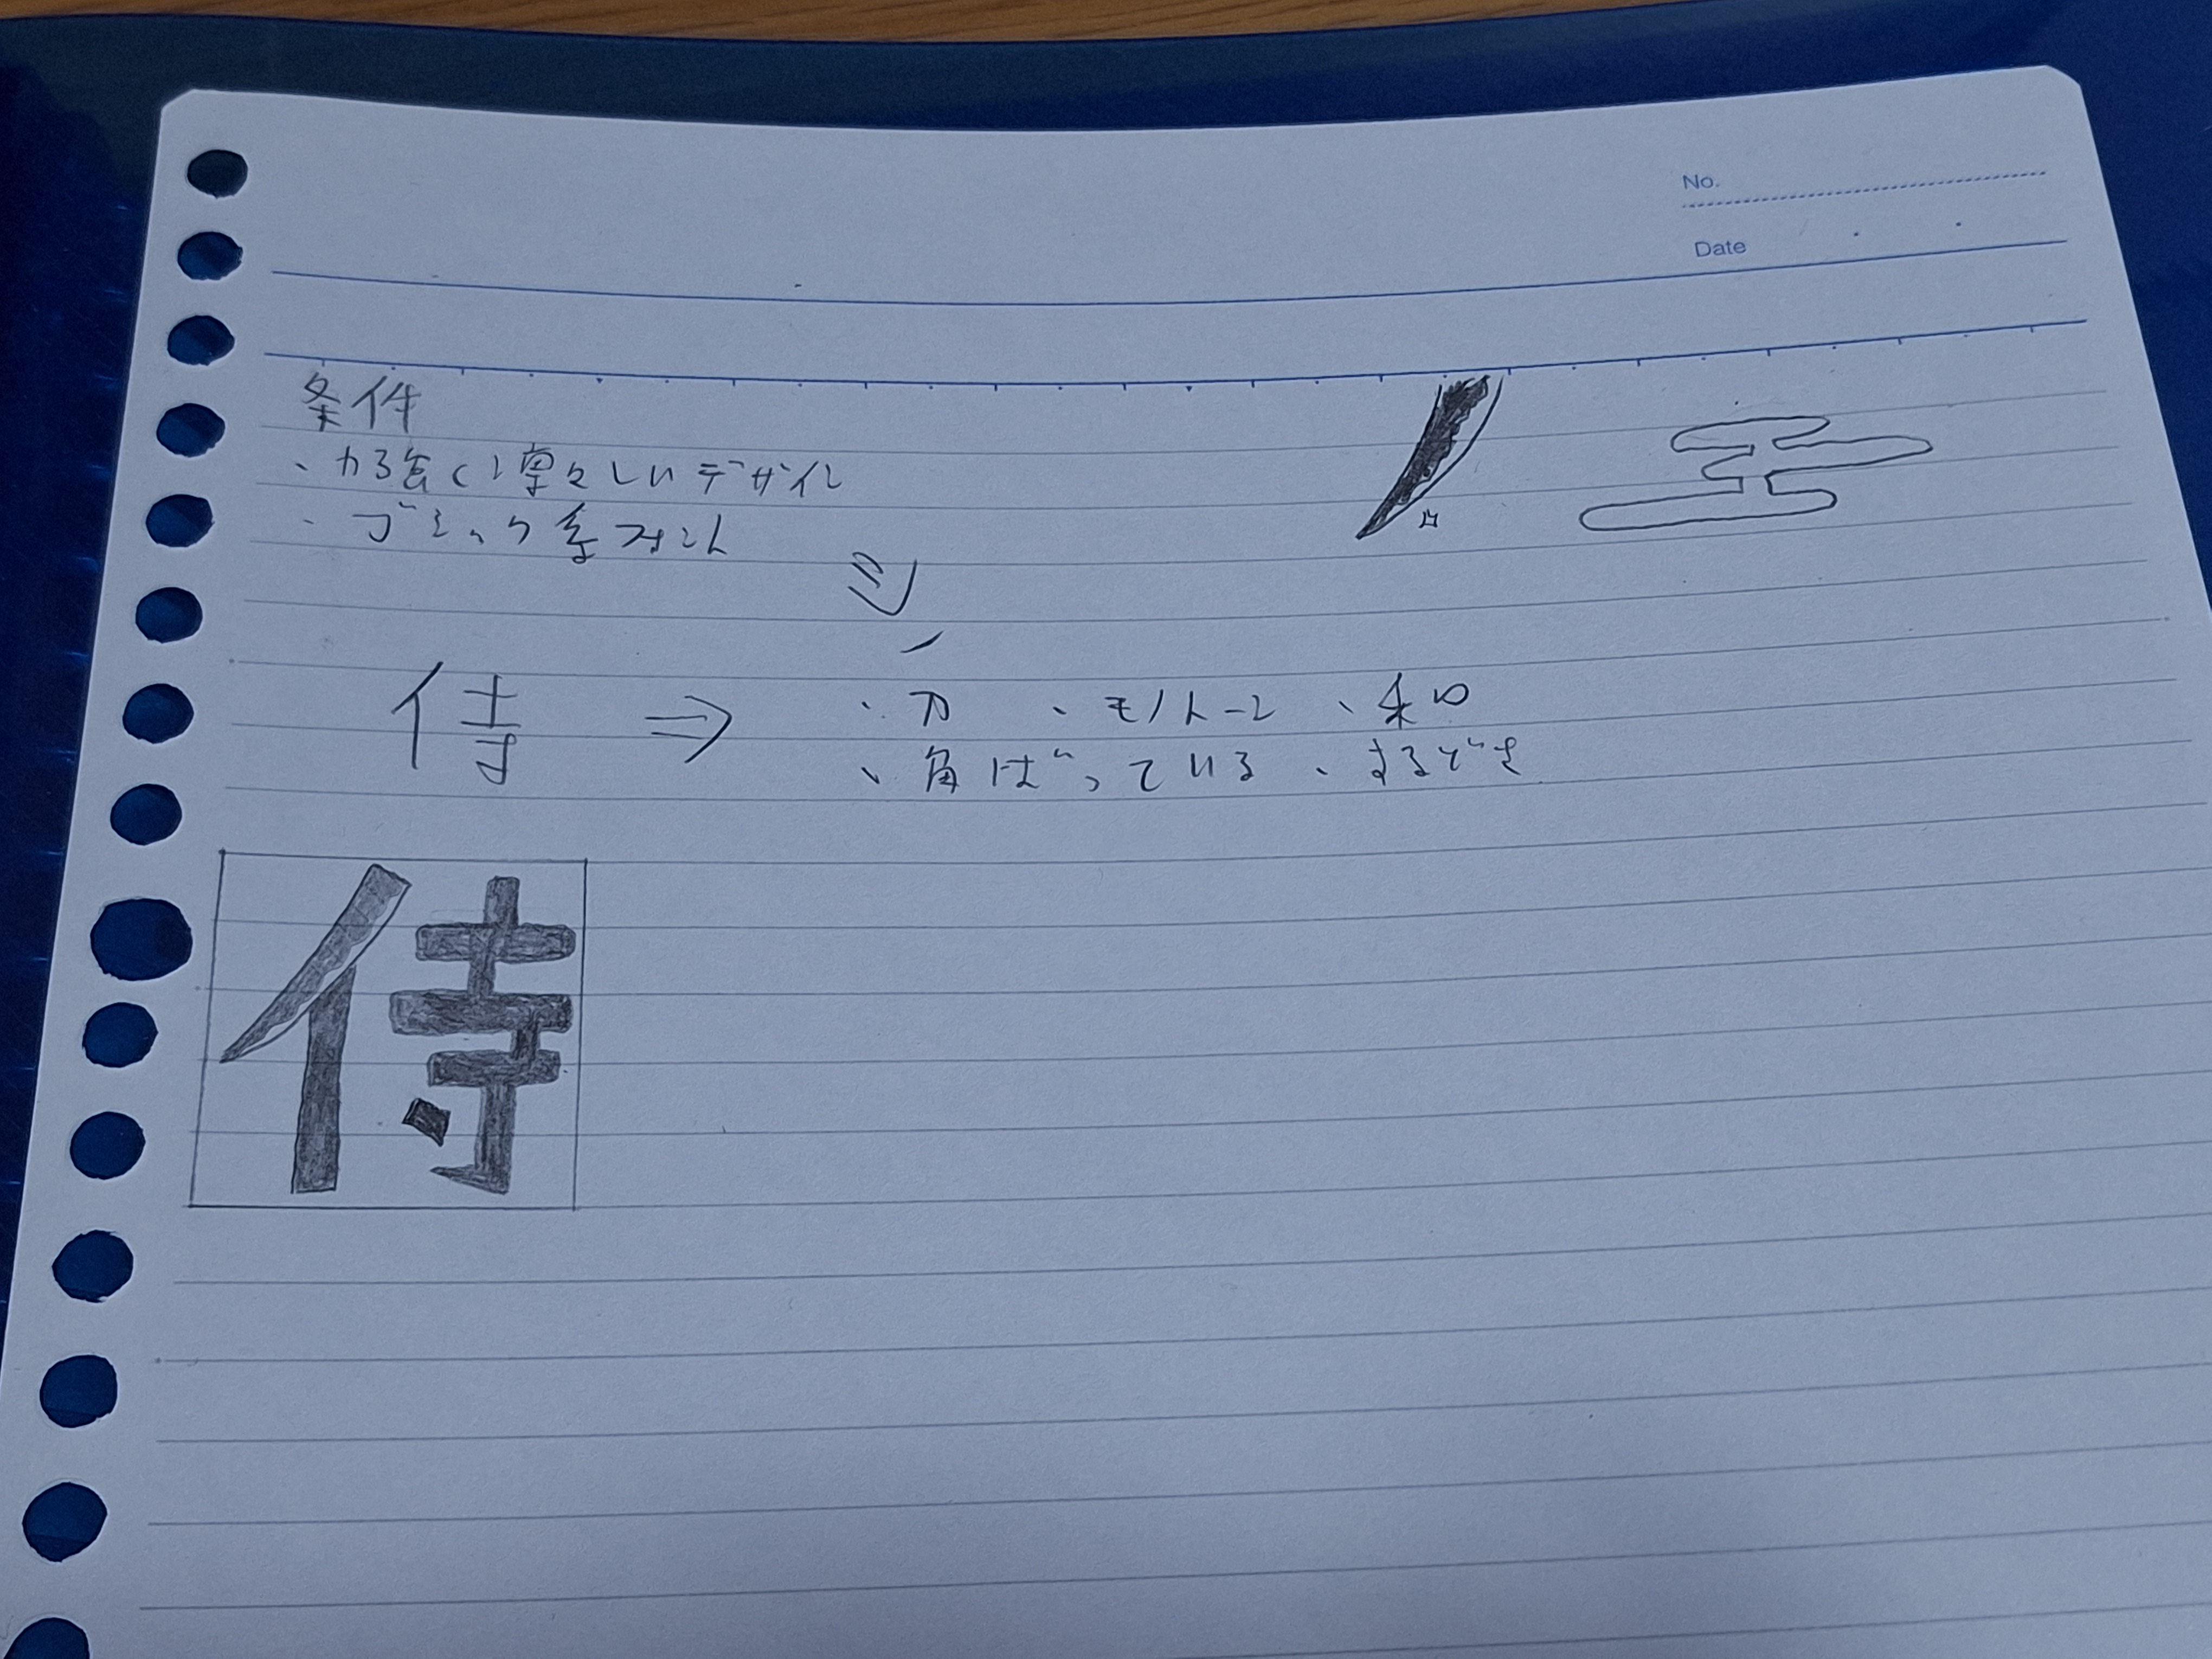 No.
Date
条件
・力強く凛々しいデザイン
・ゴシック系フォント
侍 ⇒ ・刀 ・モノトーン ・和
・角ばっている ・するどさ
侍